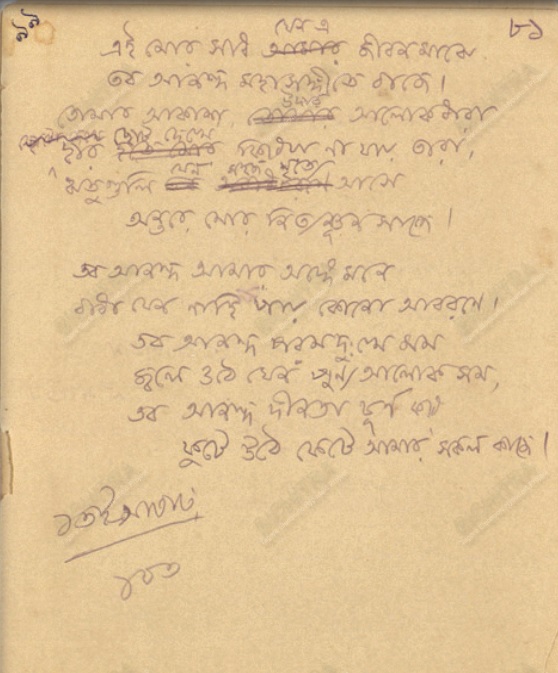 ৮১
যেন এ
এই মোর সাধ জীবনমাঝে
তব আনন্দ মহাসঙ্গীতে বাজে।
উদার
তোমার আকাশ, আলোকধারা
ছোট দেখে
দ্বার ফিরিয়া না যায় তারা,
যেন সহজ নৃত্যে
ঋতুগুলি আসে
অন্তরে মোর নিত্য নূতন সাজে।
তব আনন্দ আমার অঙ্গে মনে
বাধা যেন নাহি পায় কোনো আবরণে।
তব আনন্দ পরম দুঃখে মম
জ্বলে ওঠে যেন পুণ্য আলোক সম,
তব আনন্দ দীনতা চূর্ণ করি
ফুটে ওঠে ফেটে আমার সকল কাজে।
১৩ই আষাঢ়